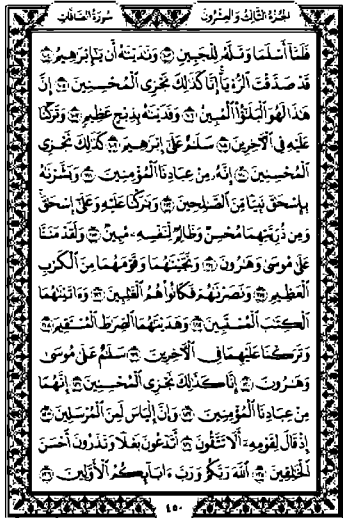 الجزء الثالث والعشرون
سورة الصافات
فَلَمَّآ أَسْلَمَا وَتَلَّهُۥ لِلْجَبِينِ ١٠٣ وَنَٰدَيْنَٰهُ أَن يَٰٓإِبْرَٰهِيمُ ١٠٤
قَدْ صَدَّقْتَ ٱلرُّءْيَآ إِنَّا كَذَٰلِكَ نَجْزِى ٱلْمُحْسِنِينَ ١٠٥ إِنَّ
هَٰذَا لَهُوَ ٱلْبَلَٰٓؤُا۟ ٱلْمُبِينُ ١٠٦ وَفَدَيْنَٰهُ بِذِبْحٍ عَظِيمٍ ١٠٧ وَتَرَكْنَا
عَلَيْهِ فِى ٱلْءَاخِرِينَ ١٠٨ سَلَٰمٌ عَلَىٰٓ إِبْرَٰهِيمَ ١٠٩ كَذَٰلِكَ نَجْزِى
ٱلْمُحْسِنِينَ ١١٠ إِنَّهُۥ مِنْ عِبَادِنَا ٱلْمُؤْمِنِينَ ١١١ وَبَشَّرْنَٰهُ
بِإِسْحَٰقَ نَبِيًّا مِّنَ ٱلصَّٰلِحِينَ ١١٢ وَبَٰرَكْنَا عَلَيْهِ وَعَلَىٰٓ إِسْحَٰقَ
وَمِن ذُرِّيَّتِهِمَا مُحْسِنٌ وَظَالِمٌ لِّنَفْسِهِۦ مُبِينٌ ١١٣ وَلَقَدْ مَنَنَّا
عَلَىٰ مُوسَىٰ وَهَٰرُونَ ١١٤ وَنَجَّيْنَٰهُمَا وَقَوْمَهُمَا مِنَ ٱلْكَرْبِ
ٱلْعَظِيمِ ١١٥ وَنَصَرْنَٰهُمْ فَكَانُوا۟ هُمُ ٱلْغَٰلِبِينَ ١١٦ وَءَاتَيْنَٰهُمَا
ٱلْكِتَٰبَ ٱلْمُسْتَبِينَ ١١٧ وَهَدَيْنَٰهُمَا ٱلصِّرَٰطَ ٱلْمُسْتَقِيمَ ١١٨
وَتَرَكْنَا عَلَيْهِمَا فِى ٱلْءَاخِرِينَ ١١٩ سَلَٰمٌ عَلَىٰ مُوسَىٰ
وَهَٰرُونَ ١٢٠ إِنَّا كَذَٰلِكَ نَجْزِى ٱلْمُحْسِنِينَ ١٢١ إِنَّهُمَا
مِنْ عِبَادِنَا ٱلْمُؤْمِنِينَ ١٢٢ وَإِنَّ إِلْيَاسَ لَمِنَ ٱلْمُرْسَلِينَ ١٢٣
إِذْ قَالَ لِقَوْمِهِۦٓ أَلَا تَتَّقُونَ ١٢٤ أَتَدْعُونَ بَعْلًا وَتَذَرُونَ أَحْسَنَ
ٱلْخَٰلِقِينَ ١٢٥ ٱللَّهَ رَبَّكُمْ وَرَبَّ ءَابَآئِكُمُ ٱلْأَوَّلِينَ ١٢٦
٤٥٠